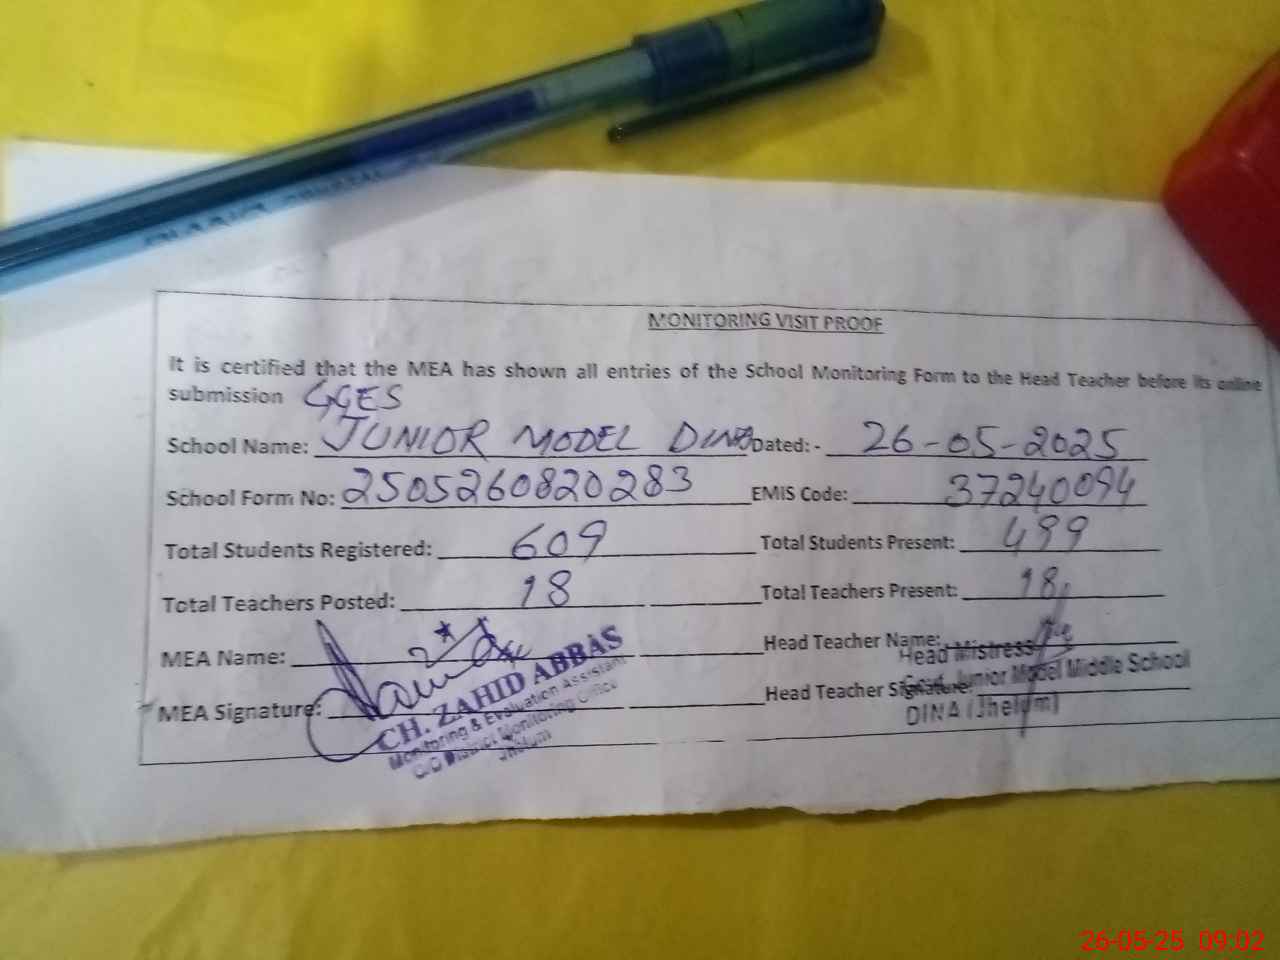 MONITORING VISIT PROOF
It is certified that the MEA has shown all entries of the School Monitoring Form to the Head Teacher before its online
submission GGES
School Name: JUNIOR MODEL DINA Dated: - 26-05-2025
School Form No: 2505260820283 EMIS Code: 37240094
Total Students Registered: 609 Total Students Present: 499
Total Teachers Posted: 18 Total Teachers Present: 18
MEA Name: Head Teacher Name:
Head Mistress
MEA Signature: Head Teacher Signature:
Govt. Junior Model Middle School
DINA (Jhelum)
CH. ZAHID ABBAS
Monitoring & Evaluation Assistant
O/O District Monitoring Office
Jhelum
26-05-25 09:02